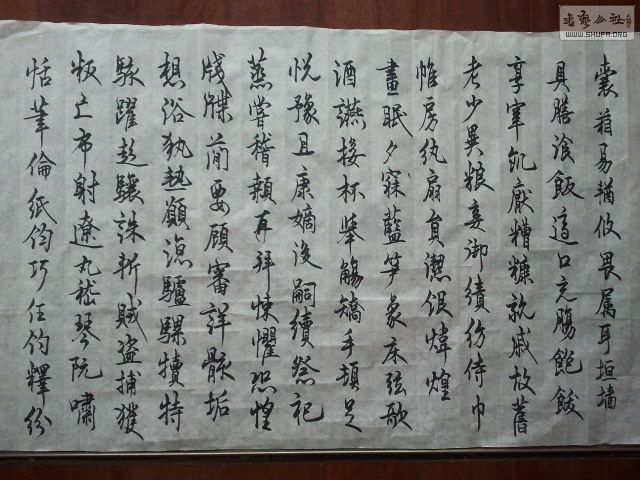 书艺公社
WWW.SHUFA.ORG
囊箱易輶攸畏属耳垣墙
具膳飡飯適口充腸飽飫
享宰飢厭糟糠親戚故舊
老少異粮妾御績紡侍巾
帷房紈扇員潔銀煒煌
晝眠夕寐藍笋象床弦歌
酒讌接杯舉觴矯手頓足
悅豫且康嫡後嗣續祭祀
蒸嘗稽顙再拜悚懼恐惶
牋牒簡要顧審詳骸垢
想浴執熱願涼驢騾犢特
駭躍超驤誅斬賊盗捕獲
叛亡布射遼丸嵇琴阮嘯
恬筆倫紙鈞巧任釣釋紛